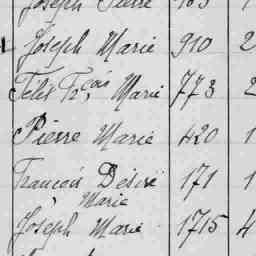 Joseph Pierre 163 1
1 Joseph Marie 910 2
Félix Fçois Marie 773 2
Pierre Marie 420 1
François Désiré 171 1
Marie
Joseph Marie 1715 4